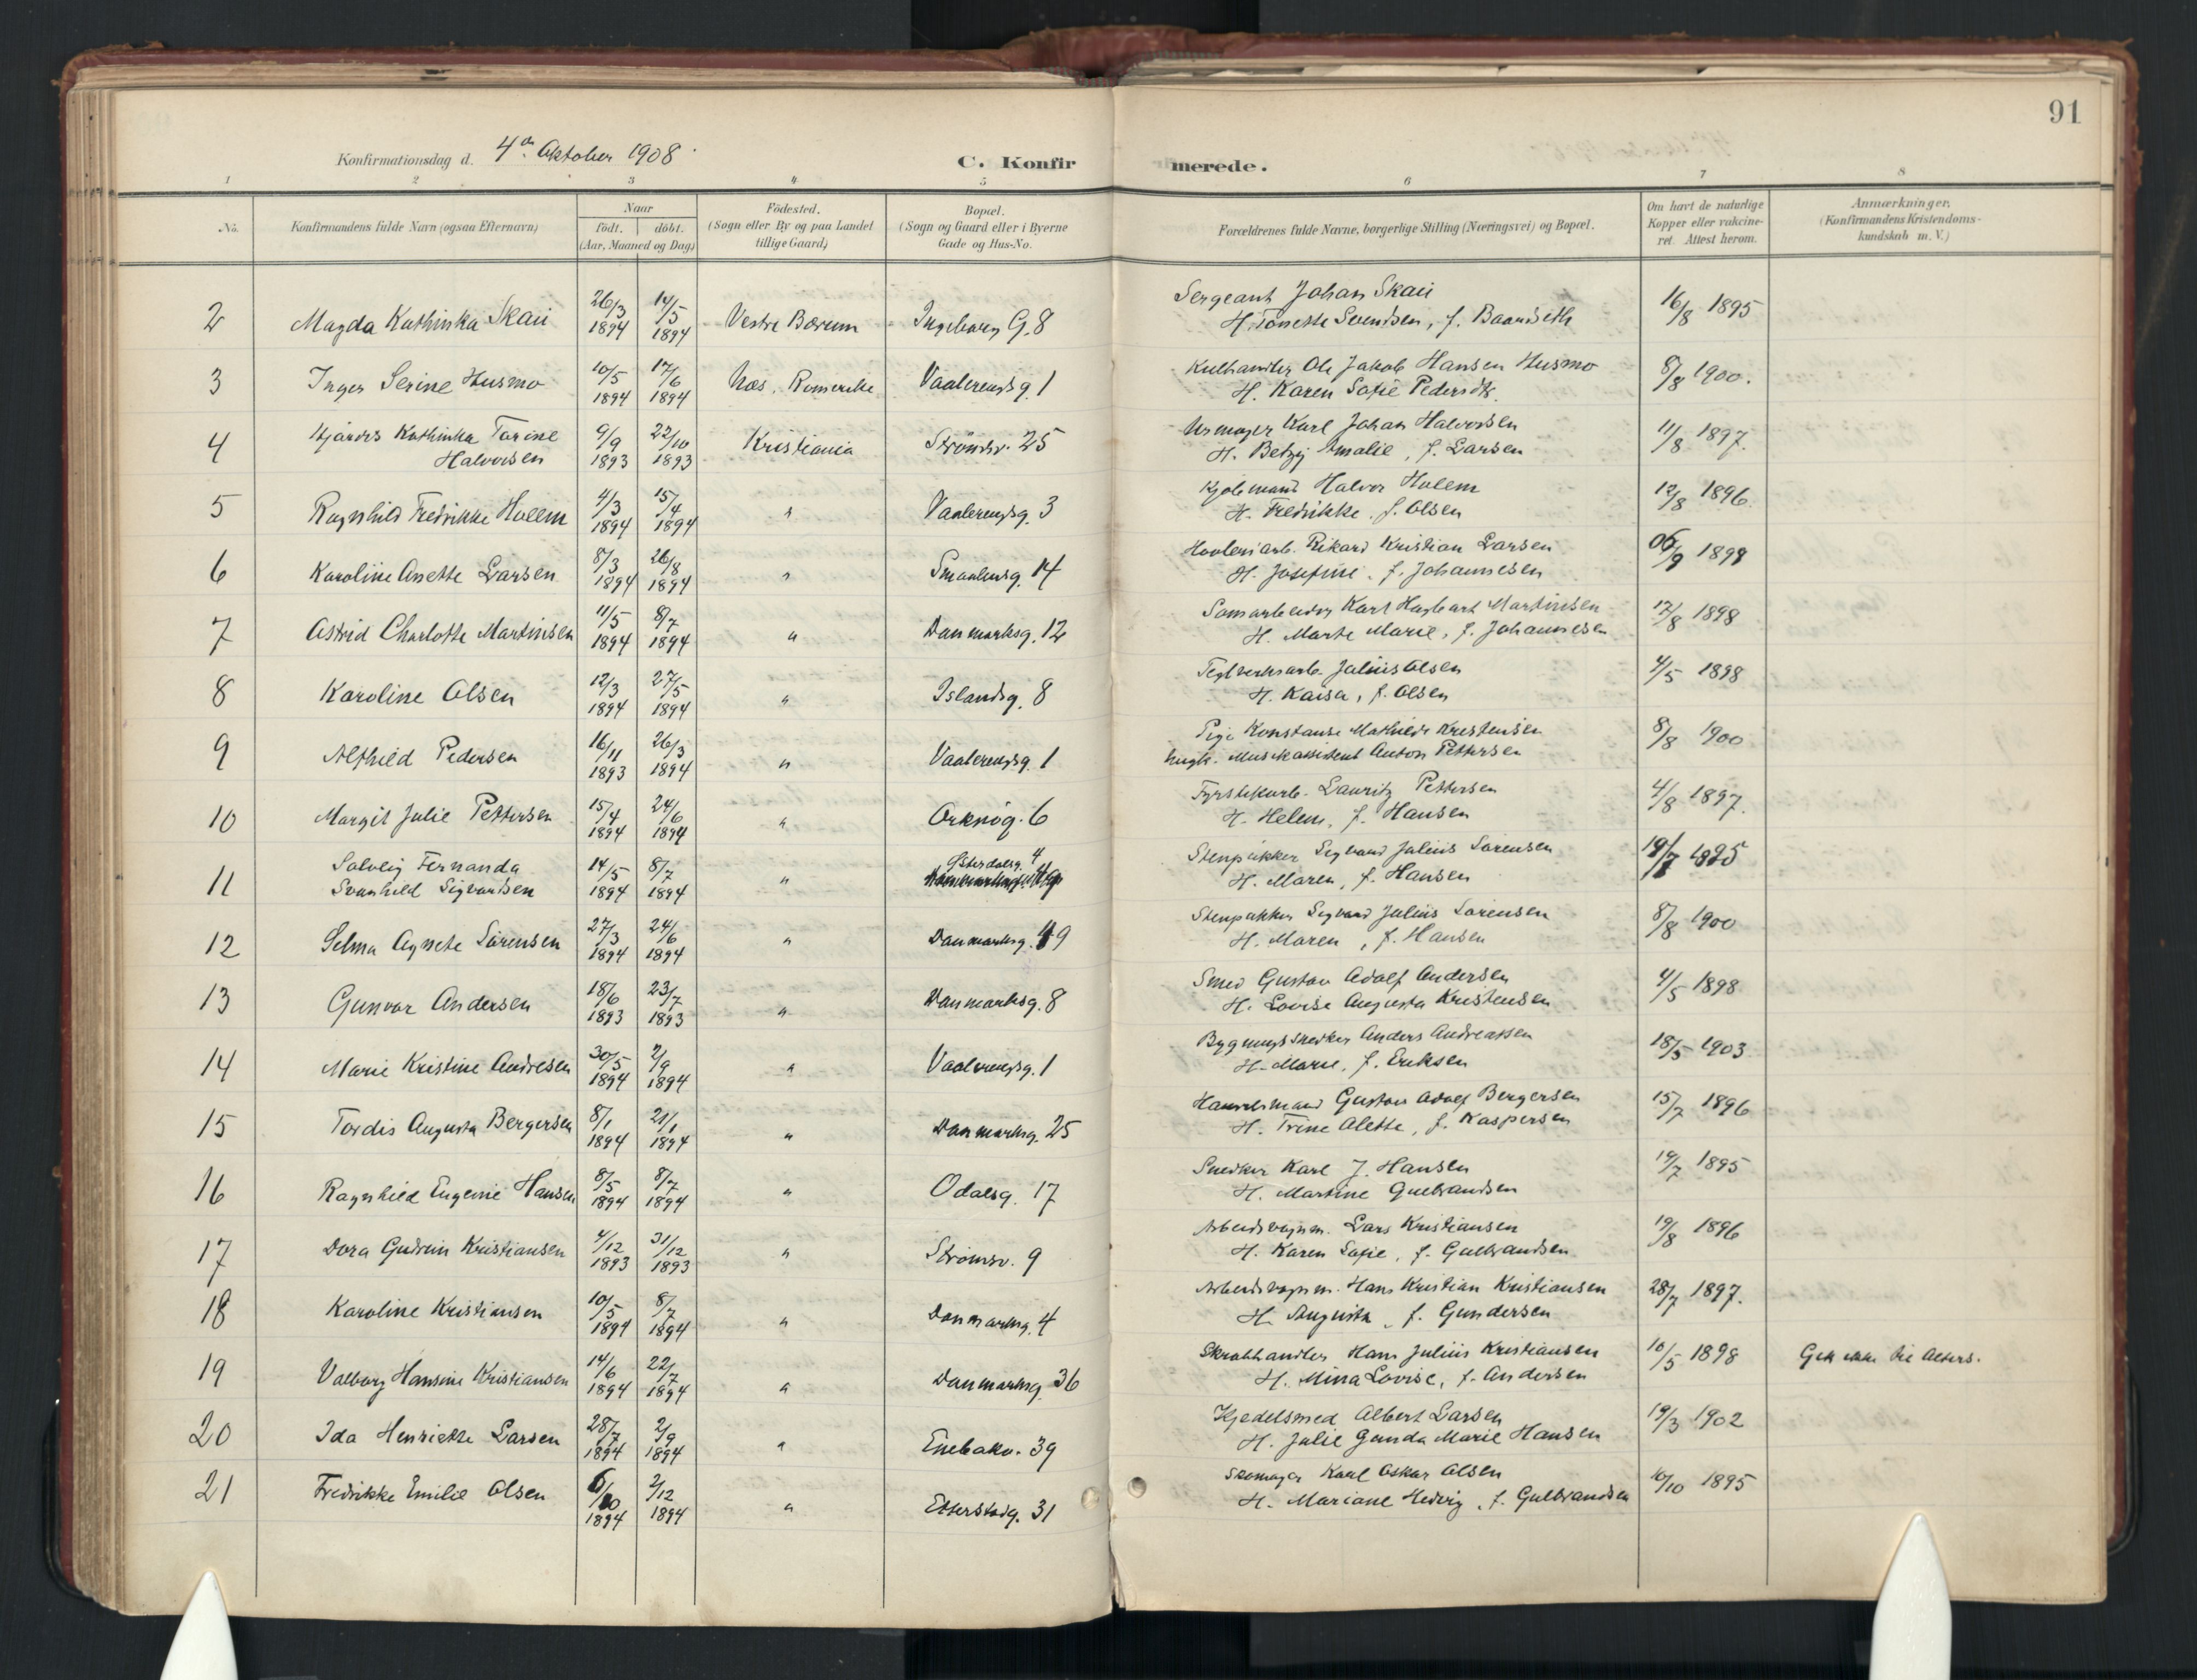 91
Konfirmationsdag d. 4de Oktober 1908.
C. Konfirmerede.
1 2 3 4 5 6 7 8
No.
Konfirmandens fulde Navn (ogsaa Efternavn)
Naar
født. døbt.
(Aar, Maaned og Dag)
Fødested.
(Sogn eller By og paa Landet
tillige Gaard)
Bopæl.
(Sogn og Gaard eller i Byerne
Gade og Hus-No.
Forældrenes fulde Navne, borgerlige Stilling (Næringsvei) og Bopæl.
Om havt de naturlige
Kopper eller vakcine-
ret. Attest herom.
Anmærkninger.
(Konfirmandens Kristendoms-
kundskab m. V.)
2 Magda Kathinka Skau 26/3 1894 14/5 1894 Vestre Bærum Ingeborg G. 8 Sergeant Johan Skau
H. Tonette Svendsen, f. 16/8 1895
3 Inger Serine Husmo 10/5 1894 17/6 1894 Næs, Romerike Vaalerengsg. 1 Kulhandler Ole Jakob Hansen Husmo
H. Karen Sofie Pedersdtr. 8/8 1900.
4 Hjørdis Kathinka Torine
Halvorsen 9/9 1893 22/10 1893 Kristiania Strømsv. 25 Urmager Karl Johan Halvorsen
H. Betzy Amalie, f. Larsen 11/8 1897.
5 Ragnhild Fredrikke Holem 4/3 1894 15/4 1894 " Vaalerengsg. 3 Halvor Holem
H. Fredrikke, f. Olsen 12/8 1896.
6 Karoline Anette Larsen 8/3 1894 26/8 1894 " Smaalensg. 14 Høvleriarb. Rikard Kristian Larsen
H. Josefine, f. Johannesen 1898
7 Astrid Charlotte Martinsen 11/5 1894 8/7 1894 " Danmarksg. 12 Karl Hagbart Martinsen
H. Marte Marie, f. Johannesen 17/8 1898
8 Karoline Olsen 12/3 1894 27/5 1894 " Islandsg. 8 Teglverksarb. Julius Olsen
H. Kaisa, f. Olsen 4/5 1898
9 Alfhild Pedersen 16/11 1893 26/3 1894 " Vaalerengsg. 1 Pige Konstanse Mathilde Kristensen
Musikassistent Anton Pettersen 8/8 1900
10 Margit Julie Pettersen 15/4 1894 24/6 1894 " Orknøg. 6 Fyrstikarb. Lauritz Pettersen
H. Helene, f. Hansen 4/8 1897.
11 Solveig Fernanda
Svanhild Sigvartsen 14/5 1894 8/7 1894 " Østerdalsg. 4 Stenpukker Sigvard Julius Sørensen
H. Maren, f. Hansen 1895
12 Selma Agnete Sørensen 27/3 1894 24/6 1894 " Danmarksg. 49 Stenpukker Sigvard Julius Sørensen
H. Maren, f. Hansen 8/8 1900
13 Gunvor Andersen 18/6 1893 23/7 1893 " Danmarksg. 8 Smed Gustav Adolf Andersen
H. Lovise Augusta Kristensen 4/5 1898
14 Marie Kristine Andresen 30/5 1894 2/9 1894 " Vaalerengsg. 1 Bygningssnedker Anders Andreassen
H. Marie, f. Eriksen 18/5 1903.
15 Tordis Augusta Bergersen 8/1 1894 21/1 1894 " Danmarksg. 25 Handelsmand Gustav Adolf Bergersen
H. Trine Alette, f. Kaspersen 15/7 1896
16 Ragnhild Eugenie Hansen 8/5 1894 8/7 1894 " Odalsg. 17 Snedker Karl J. Hansen
H. Martine Gulbrandsen 19/7 1895
17 Dora Gudrun Kristiansen 4/12 1893 31/12 1893 " Strømsv. 9 Arbeidsvognm. Lars Kristiansen
H. Karen Sofie, f. Gulbrandsen 19/8 1896
18 Karoline Kristiansen 10/5 1894 8/7 1894 " Danmarksg. 4 Arbeidsvognm. Hans Kristian Kristiansen
H. Augusta, f. Gundersen 28/7 1897.
19 Valborg Hansine Kristiansen 14/6 1894 22/7 1894 " Danmarksg. 36 Skraphandler Hans Julius Kristiansen
H. Mina Lovise, f. Andersen 10/5 1898 Gik ikke til Alters.
20 Ida Henriette Larsen 28/7 1894 2/9 1894 " Enebakv. 39 Kjedelsmed Albert Larsen
H. Julie Gunda Marie Hansen 19/3 1902
21 Fredrikke Emilie Olsen 6/10 1894 2/12 1894 " Etterstadg. 31 Skomager Karl Oskar Olsen
H. Mariane Hedvig, f. Gulbrandsen 10/10 1895